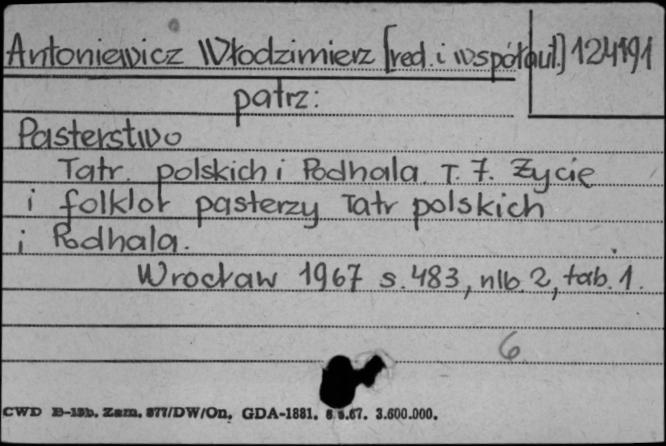 Antoniewicz Włodzimierz [red. i współaut.] 124191
patrz:
Pasterstwo
Tatr polskich i Podhala. T. 7. Życie
i folklor pasterzy Tatr polskich
i Podhala.
Wrocław 1967 s. 483, nlb. 2, tab. 1.
6
CWD B-19b. Zam. 877/DW/On. GDA-1881. 67. 3.600.000.